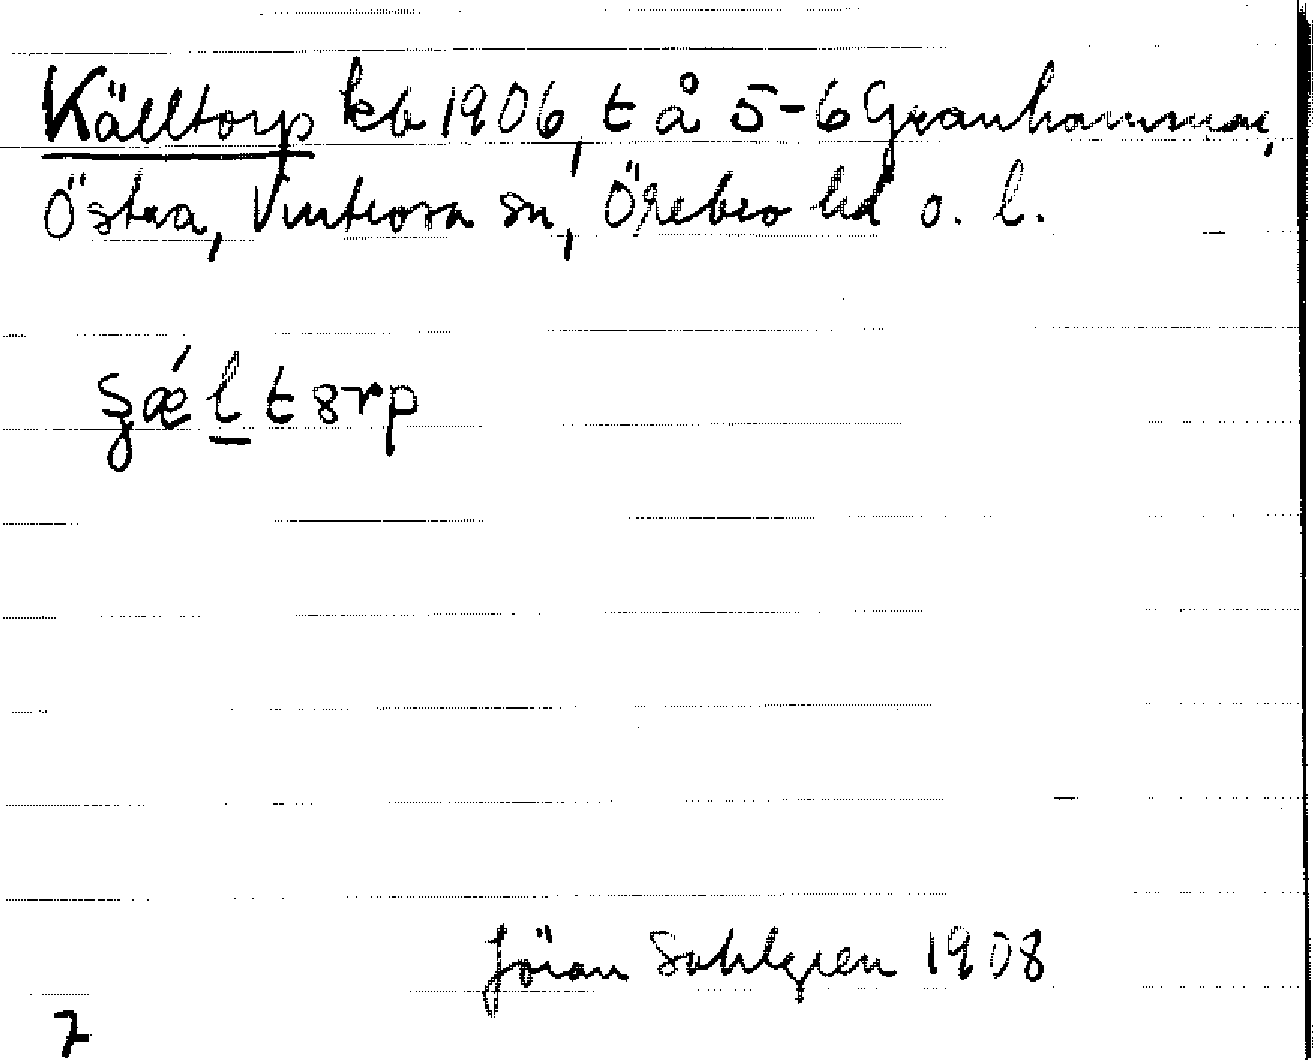 Källtorp kb 1906, t å 5-6 Granhammar,
Östra, Vintrosa sn, Örebro hd o. l.
ʂǽltorp
Jöran Sahlgren 1908
7